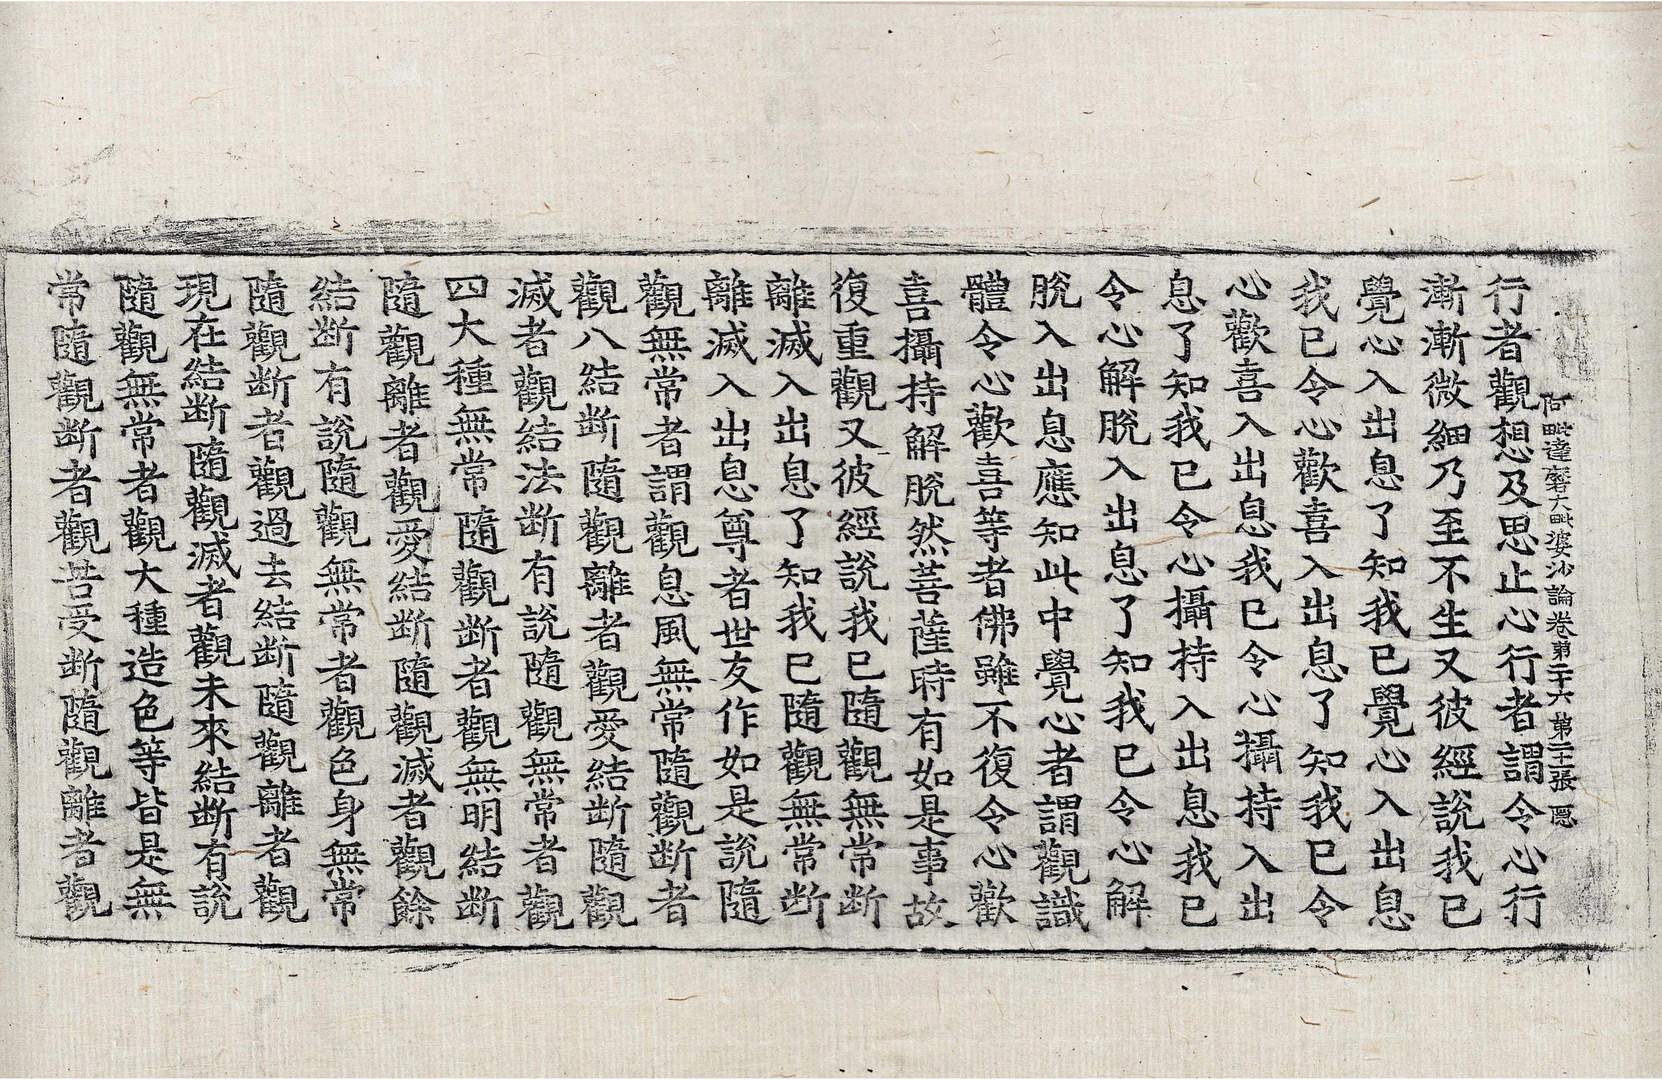 阿毗達磨大毗婆沙論卷第二十六　第二十一張　慝
行者觀想及思止心行者謂令心行
漸漸微細乃至不生又彼經說我已
覺心入出息了知我已覺心入出息
我已令心歡喜入出息了知我已令
心歡喜入出息我已令心攝持入出
息了知我已令心攝持入出息我已
令心解脫入出息了知我已令心解
脫入出息應知此中覺心者謂觀識
體令心歡喜等者佛雖不復令心歡
喜攝持解脫然菩薩時有如是事故
復重觀又彼經說我已隨觀無常斷
離滅入出息了知我已隨觀無常斷
離滅入出息尊者世友作如是說隨
觀無常者謂觀息風無常隨觀斷者
觀八結斷隨觀離者觀愛結斷隨觀
滅者觀結法斷有說隨觀無常者觀
四大種無常隨觀斷者觀無明結斷
隨觀離者觀愛結斷隨觀滅者觀餘
結斷有說隨觀無常者觀色身無常
隨觀斷者觀過去結斷隨觀離者觀
現在結斷隨觀滅者觀未來結斷有說
隨觀無常者觀大種造色等皆是無
常隨觀斷者觀苦受斷隨觀離者觀